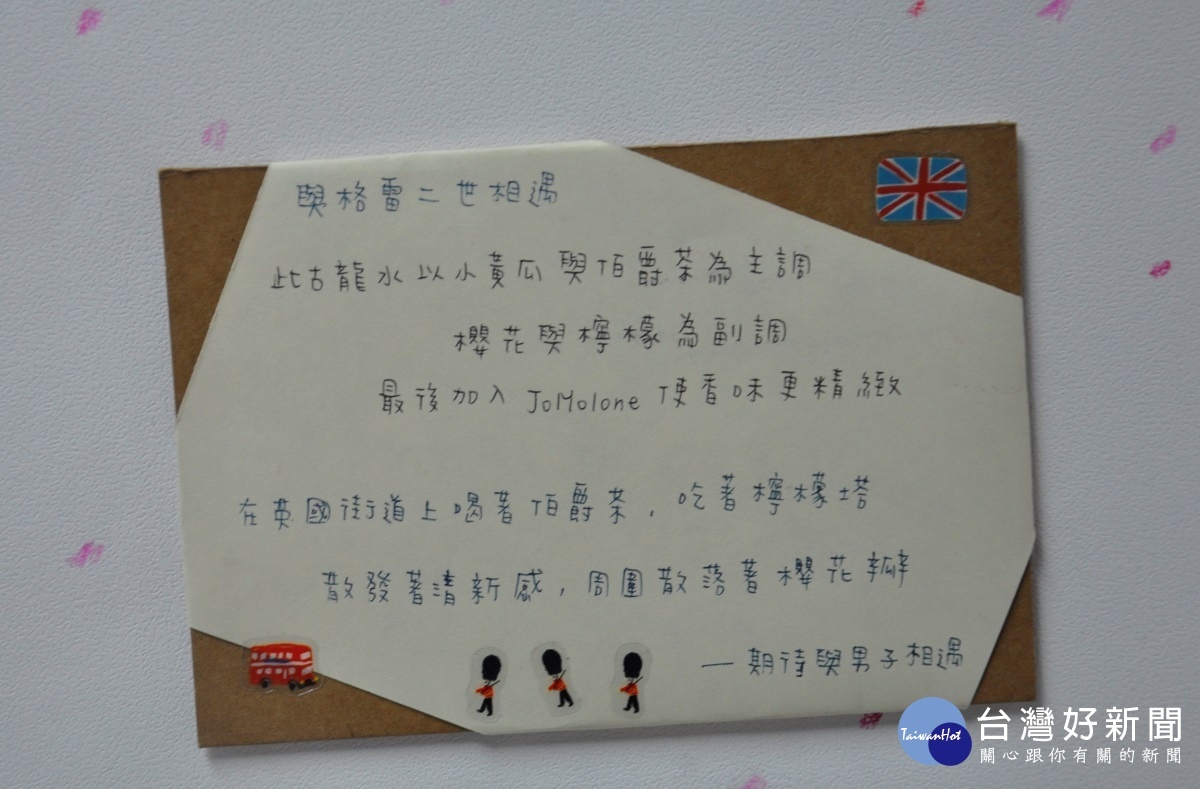 與格雷二世相遇
此古龍水以小黃瓜與伯爵茶為主調
櫻花與檸檬為副調
最後加入 JoMolone 使香味更精緻
在英國街道上喝著伯爵茶，吃著檸檬塔
散發著清新感，周圍散落著櫻花瓣
—期待與男子相遇
TaiwanHot
台灣好新聞
關心跟你有關的新聞